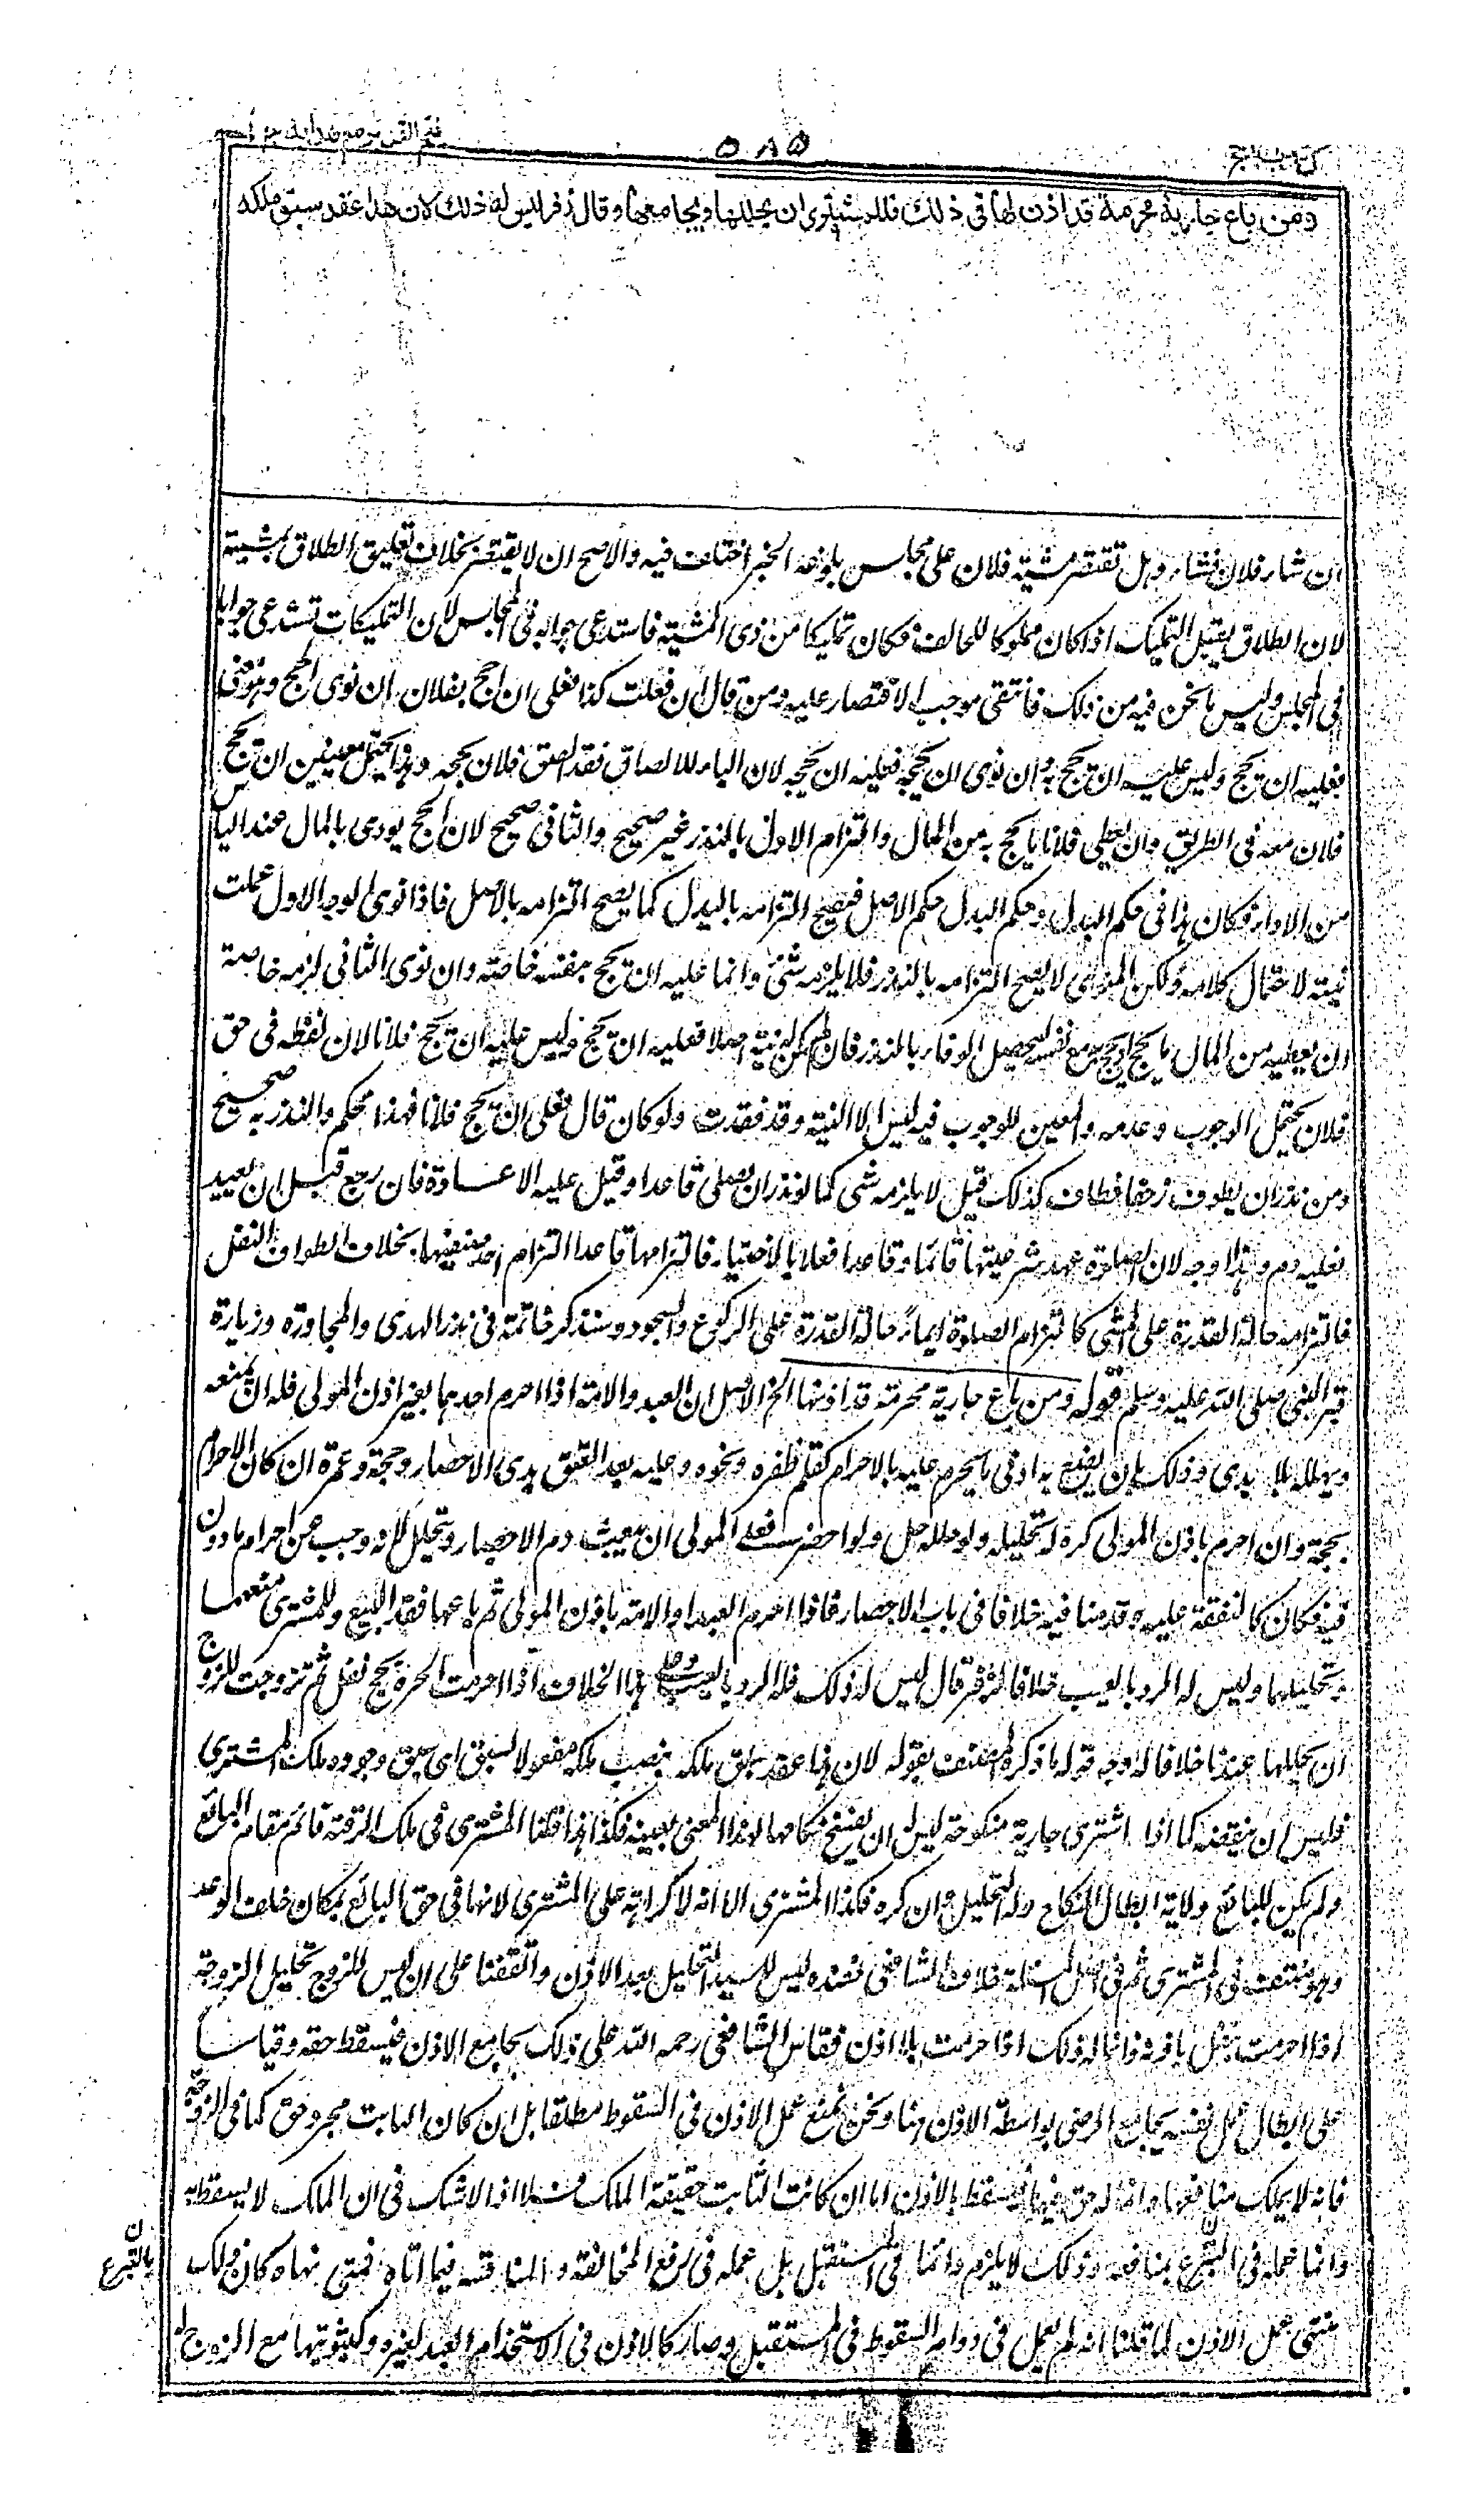 كتاب الحج
٥٨٥
فتح القدير مع هداية ج ١
ومن باع جارية محرمة قد اذن لها فى ذلك فللمشترى ان يحللها ويجامعها وقال زفر ليس له ذلك لان هذا عقد سبق ملكه
ان شاء فلان فشاء وهل تقتصر مشية فلان على مجلس بلوغه الخبر اختلف فيه والاصح ان لا يقتصر بخلاف تعليق الطلاق بمشيته
لان الطلاق يقبل التمليك اذا كان مملوكا للحالف فكان تمليكا من ذى المشية فاستدعى جوابه فى المجلس لان التمليكات تستدعى جوابا
فى المجلس وليس ما نحن فيه من ذلك فانتفى موجب الاقتصار عليه ومن قال ان فعلت كذا فعلى ان احج بفلان ان نوى احج وهو معى
فعليه ان يحج وليس عليه ان يحج به وان نوى ان يحججه فعليه ان يحججه لان الباء للالصاق فقد الصق فلان بحجه وهذا يحتمل معنيين ان يحج
فلان معه فى الطريق وان يعطى فلانا ما يحج به من المال والتزام الاول بالنذر غير صحيح والثانى صحيح لان الحج يودى بالمال عند الياس
من الاداء فكان هذا فى حكم البدل وحكم البدل حكم الاصل فيصح التزامه بالبدل كما يصح التزامه بالاصل فاذا نوى الوجه الاول عملت
نيته لاحتمال كلامه ولكن المنوى لا يصح التزامه بالنذر فلا يلزمه شئ وانما عليه ان يحج بنفسه خاصة وان نوى الثانى لزمه خاصة
ان يعطيه من المال ما يحج به او يحج به مع نفسه ليحصل الوفاء بالنذر فان لم يكن له نية اصلا فعليه ان يحج وليس عليه ان يحج فلانا لان لفظه فى حق
فلان يحتمل الوجوب وعدمه والمعين للوجوب فيه ليس الا النية وقد فقدت ولو كان قال فعلى ان يحج فلانا فهذا محكم والنذر به صحيح
ومن نذر ان يطوف زحفا فطاف كذلك قيل لا يلزمه شى كما لو نذر ان يصلى قاعدا وقيل عليه الاعادة فان رجع قبل ان يعيد
فعليه دم وهذا اوجه لان الصلوة عهد شرعيتها قائما وقاعدا فعلا بالاختيار فالتزامها قاعدا التزام احد معنييها بخلاف الطواف النفل
فالتزامه حالة القدرة على المشى كالتزام الصلوة ايماء حالة القدرة على الركوع والسجود وسنذكر خاتمة فى نذر الهدى والمجاورة وزيارة
قبر النبى صلى الله عليه وسلم قوله ومن باع جارية محرمة قد اذنها الخ الاصل ان العبد والامة اذا احرم احدهما بغير اذن المولى فله ان يمنعه
ويحلله بلا هدى وذلك بان يصنع به ادنى ما يحرم عليه بالاحرام كقلم ظفره ونحوه وعليه بعد العتق هدى الاحصار وحجة وعمرة ان كان الاحرام
بحجة وان احرم باذن المولى كره له تحليله ولو حلله حل ولو احصر فعلى المولى ان يبعث دم الاحصار ويتحلل لانه وجب من احرام ماذون
فيه فكان كالنفقة عليه وقدمنا فيه خلافا فى باب الاحصار فاذا احرم العبد او الامة باذن المولى ثم باعها نفذ البيع وللمشترى منعهما
وتحليلهما وليس له الرد بالعيب خلافا لزفر قال ليس له ذلك فله الرد بالعيب وعلى هذا الخلاف اذا احرمت الحرة بحج نفل ثم تزوجت للزوج
ان يحللها عندنا خلافا له وجه قوله ما ذكره المصنف بقوله لان هذا عقد سبق ملكه بنصب ملكه مفعولا لسبق اى سبق وجوده ملك المشترى
فليس له ان ينقضه كما اذا اشترى جارية منكوحة ليس له ان يفسخ نكاحها لهذا المعنى بعينه فكذا هذا قلنا المشترى فى ملك الرقبة قائم مقام البائع
ولم يكن للبائع ولاية ابطال النكاح وله التحليل وان كره فكذا المشترى الا انه لا كراهة على المشترى لانها فى حق البائع بمكان خلف الوعد
وهو منتف فى المشترى ثم فى اصل المسئلة خلاف الشافعى فعنده ليس للسيد التحليل بعد الاذن واتفقنا على ان ليس للزوج تحليل الزوجة
اذا احرمت بنفل باذنه وانما له ذلك اذا احرمت بلا اذن فقاس الشافعى رحمه الله على ذلك بجامع الاذن فيسقط حقه وقياسا
على ابطال عمل نفسه بجامع الرضى بواسطة الاذن هنا ونحن نمنع عمل الاذن فى السقوط مطلقا بل ان كان الثابت مجرد حق كما فى الزوجة
فانه لا يملك منافعها وانما له حق فيها فيسقط بالاذن اما ان كانت الثابت حقيقة الملك فلا اذ لا شك فى ان الملك لا يسقط به
وانما عمله فى التبرع بمنافعه وذلك لا يلزم دائما فى المستقبل بل عمله فى رفع المخالفة والمناقشة فيما اتاه فمتى نهاه كان ذلك
بالتبرع
منتهى عمل الاذن لما قلنا انه لم يعمل فى دوام السقوط فى المستقبل وصار كالاذن فى الاستخدام العبد لغيره وكبتويتها مع الزوج له